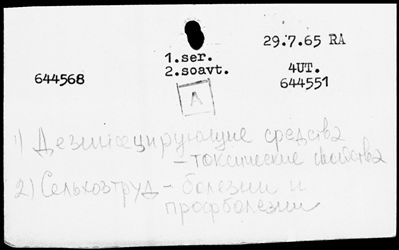 29.7.65 RA
1.ser.
2.soavt.
4UT.
644568
644551
A
1) Дезинсецирующие средства
– токсические свойства
2) Сельхозтруд – болезни и
профболезни